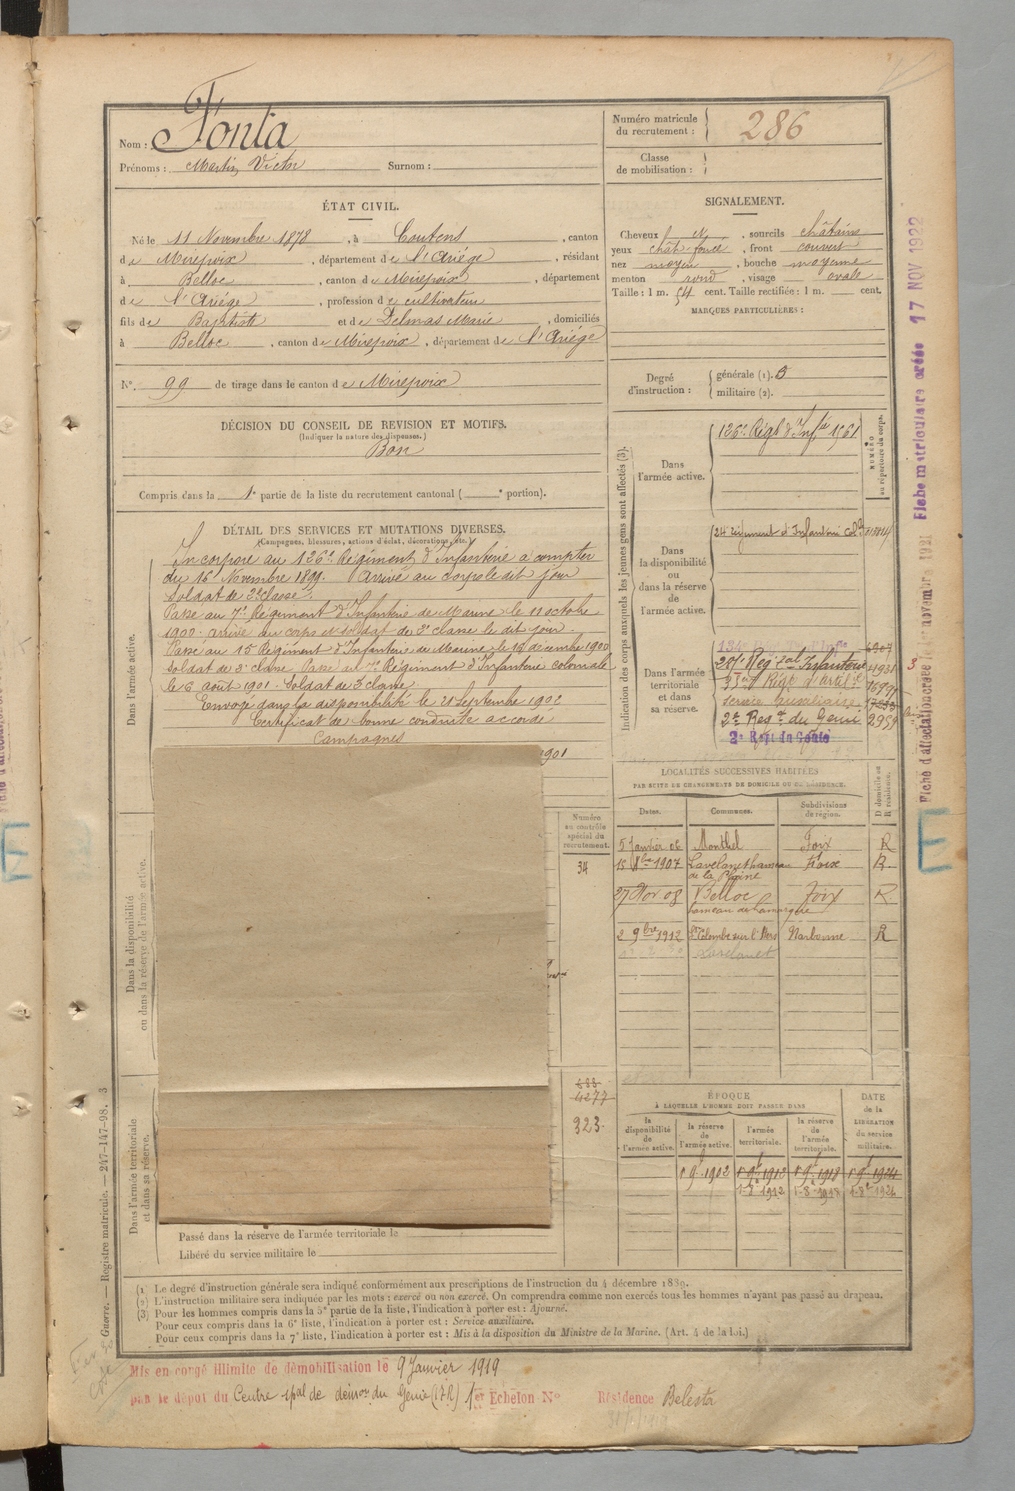 Nom : Fonta
Prénoms : Martin Victor Surnom :
Numéro matricule du recrutement : 286
Classe de mobilisation :
ÉTAT CIVIL.
Né le 11 Novembre 1878, à Coutens, canton
de Mirepoix, département de l'Ariège, résidant
à Belloc, canton de Mirepoix, département
de l'Ariège, profession de cultivateur
fils de Baptiste et de Delmas Marie, domiciliés
à Belloc, canton de Mirepoix, département de l'Ariège
N° 99 de tirage dans le canton de Mirepoix
SIGNALEMENT.
Cheveux N, sourcils châtains
yeux chât foncé, front couvert
nez moyen, bouche moyenne
menton rond, visage ovale
Taille : 1 m. 54 cent. Taille rectifiée : 1 m. cent.
MARQUES PARTICULIÈRES :
Degré d'instruction : générale (1). 3
militaire (2).
DÉCISION DU CONSEIL DE REVISION ET MOTIFS.
(Indiquer la nature des dispenses.)
Bon
Compris dans la 1e partie de la liste du recrutement cantonal ( e portion).
DÉTAIL DES SERVICES ET MUTATIONS DIVERSES.
(Campagnes, blessures, actions d'éclat, décorations, etc.)
Dans l'armée active.
Incorporé au 126e Régiment d'Infanterie à compter
du 16 Novembre 1899. Arrivé au corps le dit jour
Soldat de 2e classe.
Passé au 7e Régiment d'Infanterie de Marine le 11 octobre
1900. arrivé au corps et soldat de 3e classe le dit jour.
Passé au 15 Régiment d'Infanterie de Marine, le 15 décembre 1900
soldat de 3e classe. Passé au Régiment d'Infanterie coloniale
le 6 août 1901. Soldat de 3 classe
Envoyé dans la disponibilité le 21 Septembre 1902
Certificat de bonne conduite accordé
Campagnes
1901
Dans la disponibilité ou dans la réserve de l'armée active.
Dans l'armée territoriale et dans sa réserve.
Numéro au contrôle spécial du recrutement.
34
4277
323
Passé dans la réserve de l'armée territoriale le
Libéré du service militaire le
Indication des corps auxquels les jeunes gens sont affectés (3).
NUMÉRO au répertoire du corps.
Dans l'armée active.
126e Régt d'Infie 1561
Dans la disponibilité ou dans la réserve de l'armée active.
24 régiment d'Infanterie Colle
Dans l'armée territoriale et dans sa réserve.
Régt d'artie
Service auxiliaire
2e Régt du Génie 2959
2e Régt du Génie
LOCALITÉS SUCCESSIVES HABITÉES
PAR SUITE DE CHANGEMENTS DE DOMICILE OU DE RÉSIDENCE.
Dates. Communes. Subdivisions de région. D domicile ou R résidence.
5 Janvier 06 Monthel Foix R
15 8bre 1907 Lavelanet hameau de la Plaine Foix R
27 Nov 08 Belloc Foix R
2 9bre 1912 Ste Colombe sur l'Hers Narbonne R
Lavelanet
ÉPOQUE
À LAQUELLE L'HOMME DOIT PASSER DANS
la disponibilité de l'armée active. la réserve de l'armée active. l'armée territoriale. la réserve de l'armée territoriale. DATE de la LIBÉRATION du service militaire.
1 9e 1902 1 9e 1912 1 9e 1918 1 9e 1924
1-8e 1912 1-8 1918 1-8e 1924
(1) Le degré d'instruction générale sera indiqué conformément aux prescriptions de l'instruction du 4 décembre 1889.
(2) L'instruction militaire sera indiquée par les mots : exercé ou non exercé. On comprendra comme non exercés tous les hommes n'ayant pas passé au drapeau.
(3) Pour les hommes compris dans la 5e partie de la liste, l'indication à porter est : Ajourné.
Pour ceux compris dans la 6e liste, l'indication à porter est : Service auxiliaire.
Pour ceux compris dans la 7e liste, l'indication à porter est : Mis à la disposition du Ministre de la Marine. (Art. 4 de la loi.)
Guerre. — Registre matricule. — 247-147-98. 3
Mis en congé illimité de démobilisation le 9 Janvier 1919
par le dépôt du Centre ipal de démon du Génie (17R) 1er Echelon N°
Résidence Belesta
Fiche matriculaire créée 17 NOV 1922
Fiche d'affectation créée le 1er novembre 1921
E
E